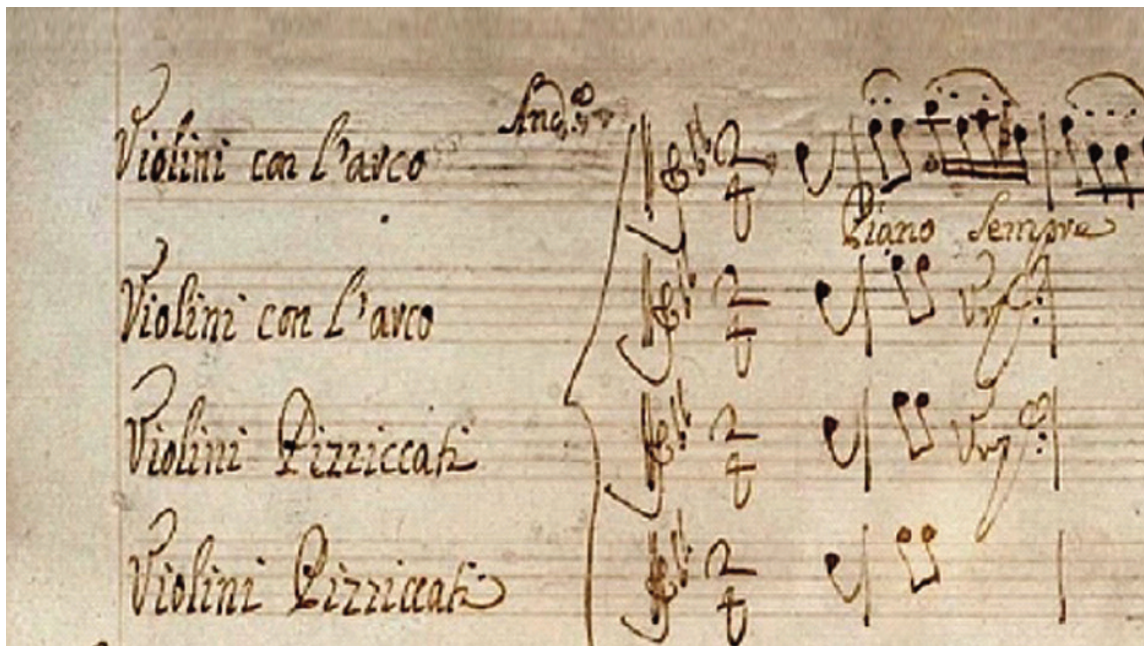 And.
Violini con l'arco
Piano Sempre
Violini con l'arco
Violini Pizziccati
Violini Pizziccati